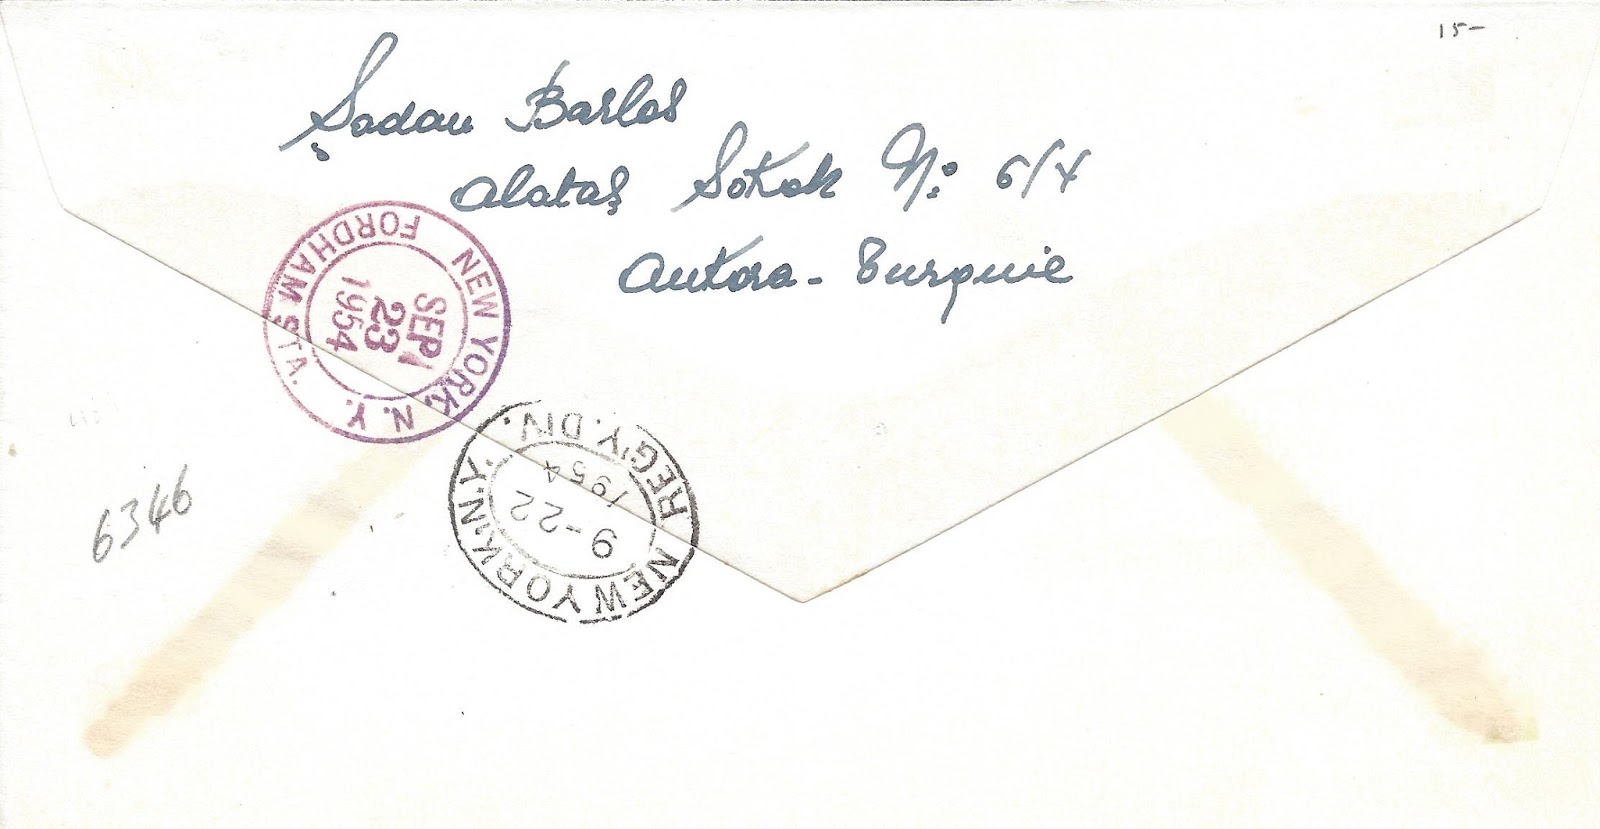 15-
Şadan Barlas
Alataş Sokak No: 6/4
Ankara - Turquie
NEW YORK, N.Y.
FORDHAM STA.
SEP
23
1954
NEW YORK, N.Y.
REG'Y. DIV.
9-22
1954
6346